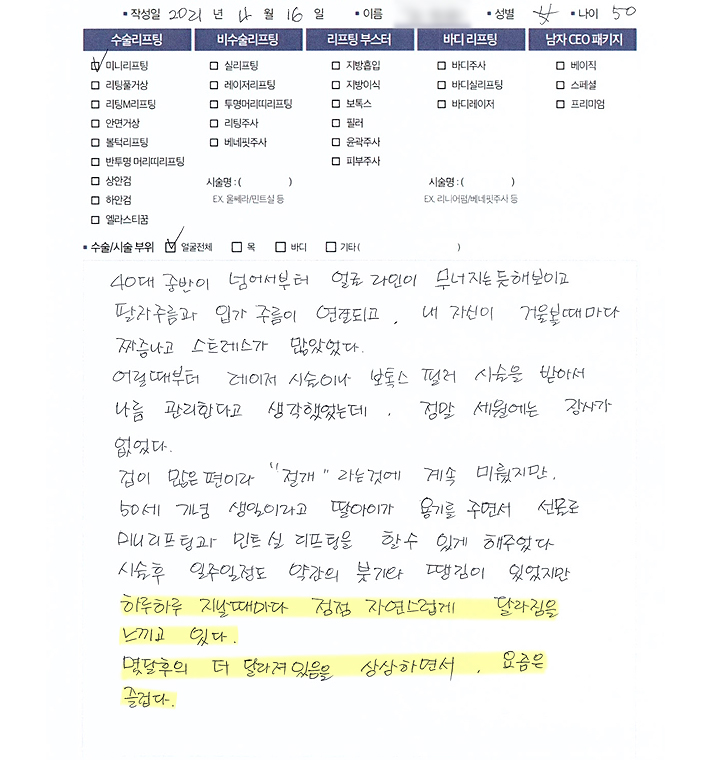 • 작성일 2021 년 11 월 16 일 • 이름 • 성별 女 • 나이 50
수술리프팅 비수술리프팅 리프팅 부스터 바디 리프팅 남자 CEO 패키지
미니리프팅 실리프팅 지방흡입 바디주사 베이직
리팅풀거상 레이저리프팅 지방이식 바디실리프팅 스페셜
리팅M리프팅 투명머리띠리프팅 보톡스 바디레이저 프리미엄
안면거상 리팅주사 필러
볼턱리프팅 베네핏주사 윤곽주사
반투명 머리띠리프팅 피부주사
상안검 시술명 : ( ) 시술명 : ( )
하안검 EX. 울쎄라/민트실 등 EX. 리니어펌/베네핏주사 등
엘라스티꿈
• 수술/시술 부위 얼굴전체 목 바디 기타 ( )
40대 중반이 넘어서부터 얼굴 라인이 무너지는듯해보이고
팔자주름과 입가 주름이 연결되고, 내 자신이 거울볼때마다
짜증나고 스트레스가 많았었다.
어릴때부터 레이저 시술이나 보톡스 필러 시술을 받아서
나름 관리한다고 생각했었는데, 정말 세월에는 장사가
없었다.
겁이 많은편이라 "절개" 라는것에 계속 미뤘지만,
50세 기념 생일이라고 딸아이가 용기를 주면서 선물로
미니리프팅과 민트실 리프팅을 할수 있게 해주었다
시술후 일주일정도 약간의 붓기와 땡김이 있었지만
하루하루 지날때마다 점점 자연스럽게 달라짐을
느끼고 있다.
몇달후의 더 달라져있음을 상상하면서, 요즘은
즐겁다.